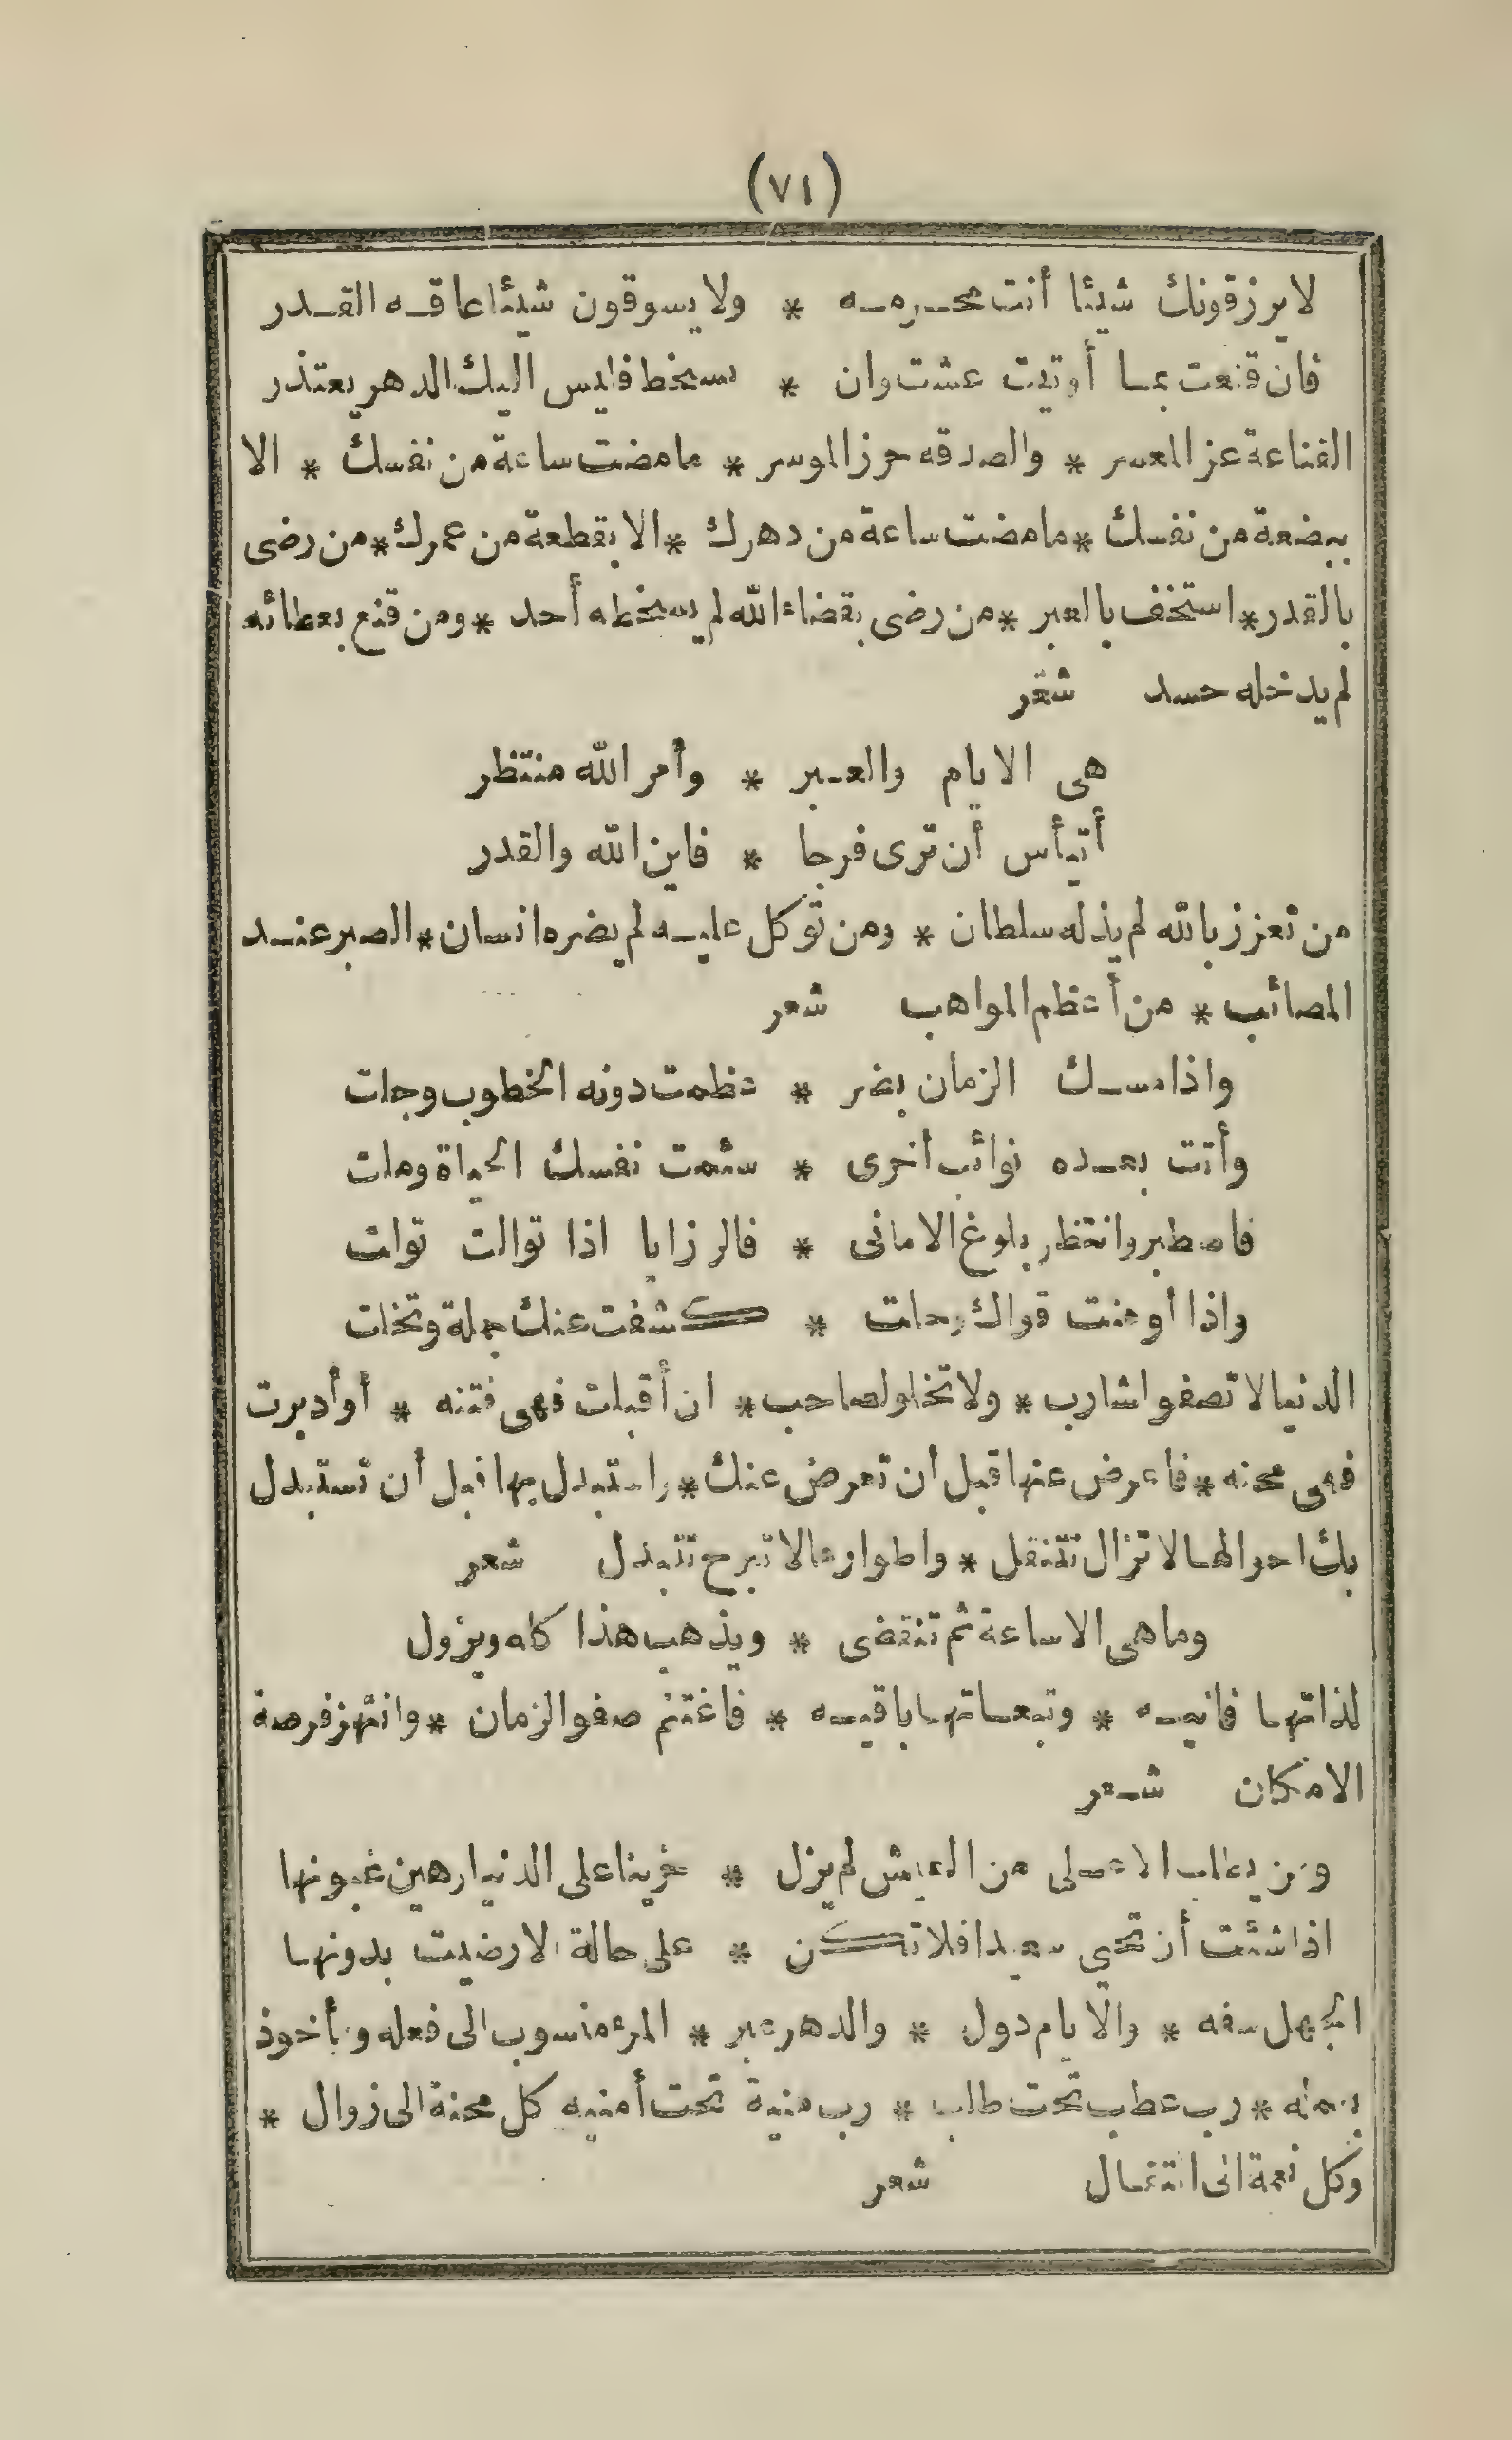 (٧١)
لا يرزقونك شيئا أنت محرمه * ولا يسوقون شيئا عاقه القدر
فان قنعت بما أوتيت عشت وان * تسخط فليس اليك الدهر يعتذر
القناعة عز المعسر * والصدقه حرز الموسر * ما مضت ساعة من نفسك * الا
ببضعة من نفسك * ما مضت ساعة من دهرك * الا بقطعة من عمرك * من رضى
بالقدر * استخف بالعبر * من رضى بقضاء الله لم يسخطه أحد * ومن قنع بعطائه
لم يدخله حسد شعر
هى الايام والعبر * وأمر الله منتظر
أتيأس أن ترى فرجا * فاين الله والقدر
من تعزز بالله لم يذله سلطان * ومن توكل عليه لم يضره انسان * الصبر عند
المصائب * من أعظم المواهب شعر
واذا مسك الزمان بضر * عظمت دونه الخطوب وجلت
وأتت بعده نوائب أخرى * سئمت نفسك الحياة وملت
فاصطبر وانتظر بلوغ الامانى * فالرزايا اذا توالت تولت
واذا أوهنت قواك وحلت * كشفت عنك جملة وتخلت
الدنيا لا تصفو لشارب * ولا تخلو لصاحب * ان أقبلت فهى فتنه * أو أدبرت
فهى محنه * فاعرض عنها قبل أن تعرض عنك * واستبدل بها قبل أن تستبدل
بك احوالها لا تزال تتنقل * واطوارها لا تبرح تتبدل شعر
وما هى الا ساعة ثم تنقضى * ويذهب هذا كله ويزول
لذاتها فانيه * وتبعاتها باقيه * فاغتنم صفو الزمان * وانتهز فرصة
الامكان شعر
ومن يطلب الاعلى من العيش لم يزل * حزينا على الدنيا رهين غبونها
اذا شئت أن تحيى سعيدا فلا تكن * على حالة الا رضيت بدونها
الجهل سفه * والايام دول * والدهر عبر * المرء منسوب الى فعله ومأخوذ
بعمله * رب عطب تحت طلب * رب منية تحت أمنيه كل محنة الى زوال *
وكل نعمة الى انتقال شعر